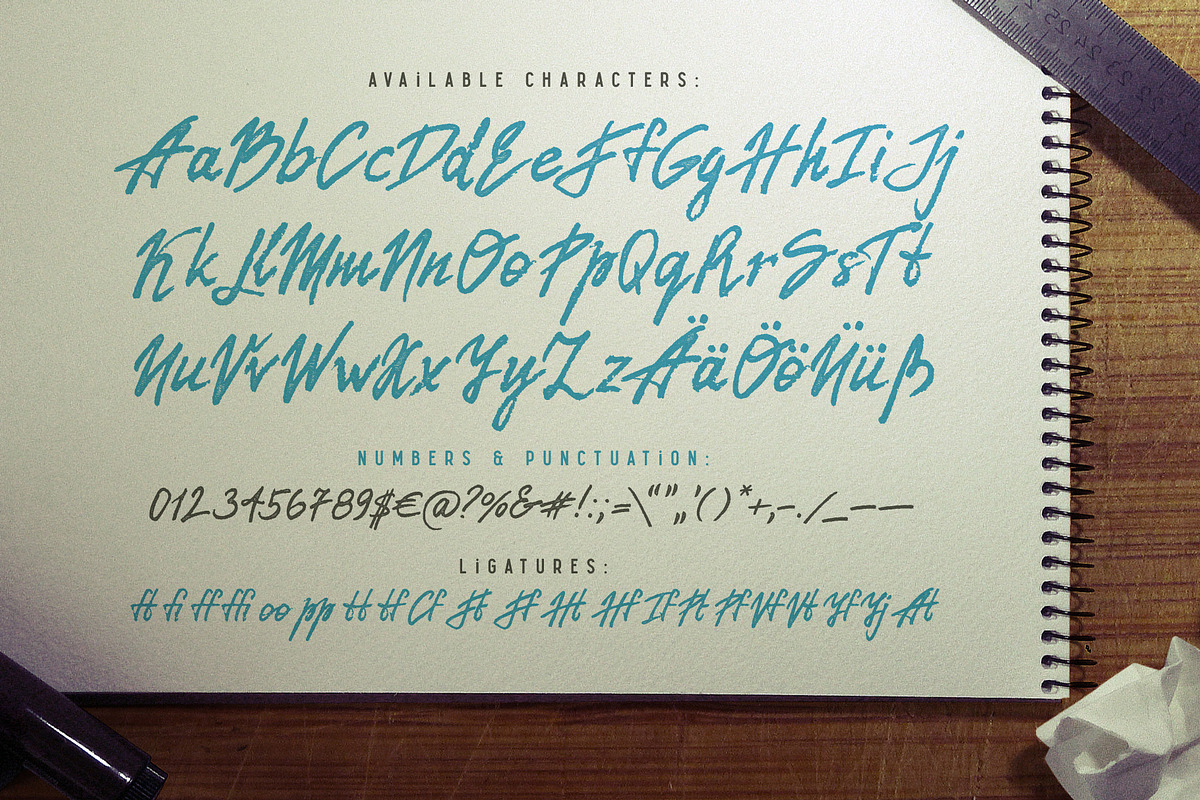 AVAiLABLE CHARACTERS:
AaBbCcDdEeFfGgHhIiJj
KkLlMmNnOoPpQqRrSsTt
UuVvWwXxYyZzÄäÖöÜüß
NUMBERS & PUNCTUATiON:
0123456789$€@?%&#!:;=\“”„'()*+,-./_–—
LiGATURES:
ft fi ff ffi oo pp tt tf Cf Ft Ff Ht Hf If Pt Pf Vf Vt Yf Yj At